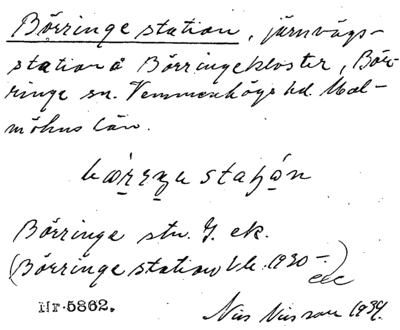 Börringe station, järnvägs-
station å Börringekloster, Bör-
ringe sn. Vemmenhögs hd. Mal-
möhus län.
Börringe stn. G. ek.
(Börringe station 1930-)
Nr 5862.
Nils Nilsson 1934.